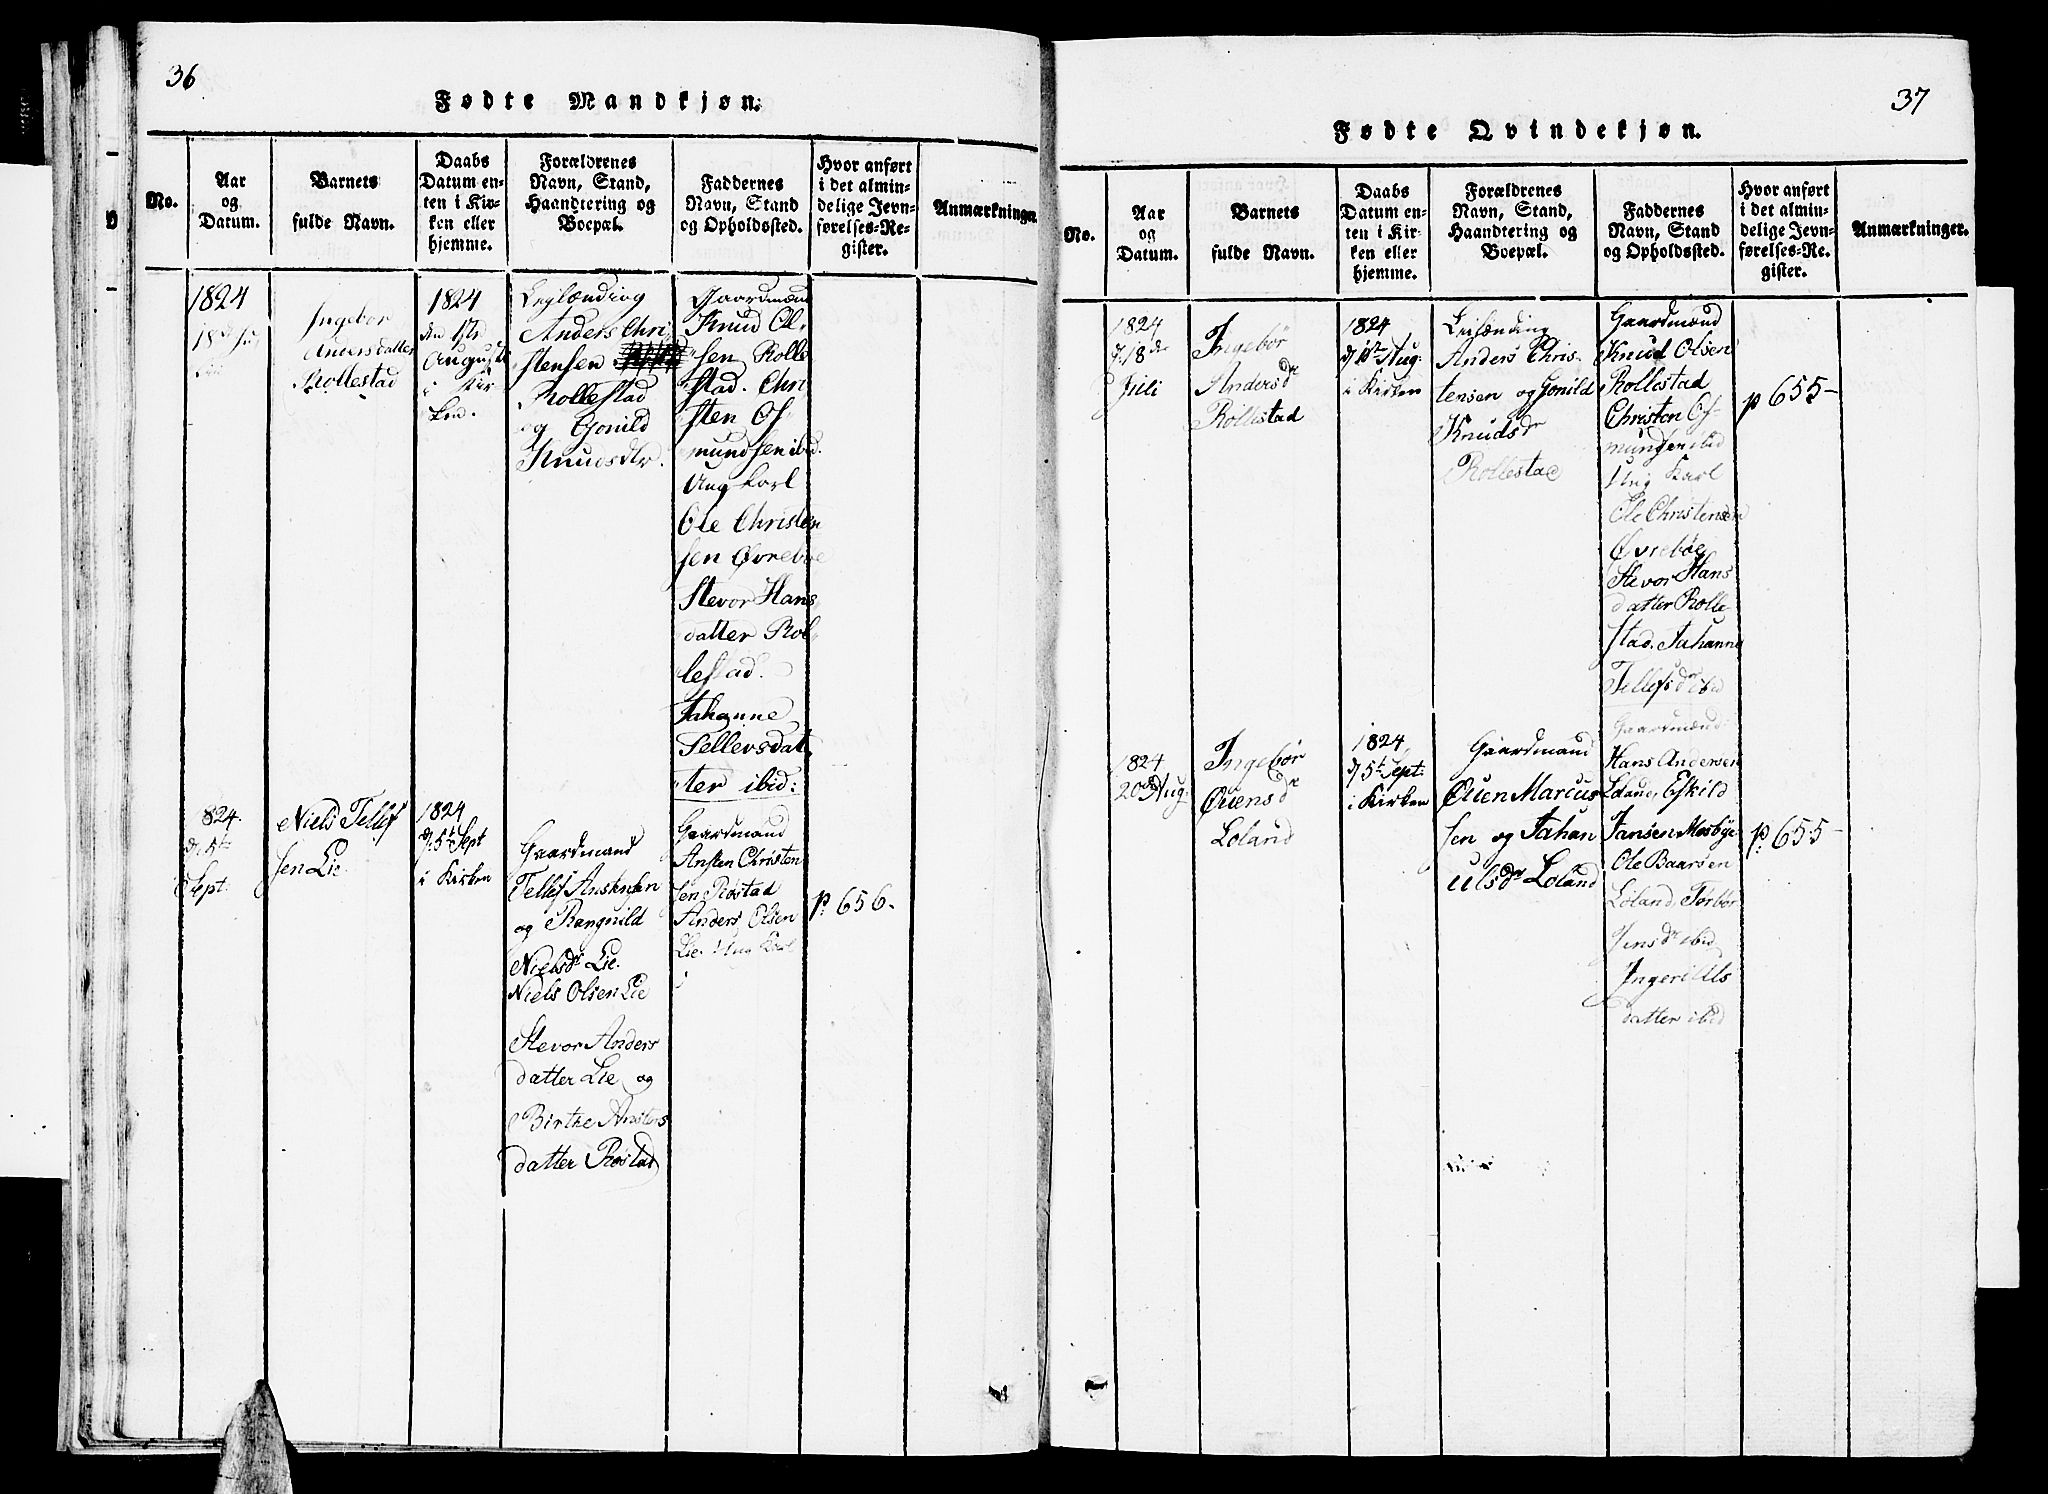 36
Fødte Mandkjøn.
No.
Aar
og
Datum.
Barnets
fulde Navn.
Daabs
Datum en-
ten i Kir-
ken eller
hjemme.
Forældrenes
Navn, Stand,
Haandtering og
Boepæl.
Faddernes
Navn, Stand
og Opholdssted.
Hvor anført
i det almin-
delige Jevn-
førelses-Re-
gister.
Anmærkninger.
1824
18de
Ingebor
Andersdatter
Rollestad
1824
den 1ste
Augusti
i Kir
ken.
Leylænding
Anders Chri
stensen
Rollestad
og Gonild
Knudsdtr.
Gaardmænd
Knud Ol-
sen Rolle
stad. Chri
sten Os-
mundsen ibid.
Ung karl
Ole Christen
sen Øvrebøe
Stevor Hans
datter Rol-
lestad.
Johanne
Tellevsdat
ter ibid:
824
d. 5te
Sept:
Niels Tellef
sen Lie
1824
d. 5te Sept
i Kirken
Gaardmand
Tellef Anstensen
og Rangnild
Nielsdr Lie.
Niels Olsen Lie
Stevor Anders
datter Lie og
Birthe Anstens
datter Røstad
Gaardmand
Ansten Christen
sen Røstad
Anders Olsen
Lie. Ung Karl
p. 656.
37
Fødte Qvindekjøn.
No.
Aar
og
Datum.
Barnets
fulde Navn.
Daabs
Datum en-
ten i Kir-
ken eller
hjemme.
Forældrenes
Navn, Stand,
Haandtering og
Boepæl.
Faddernes
Navn, Stand
og Opholdssted.
Hvor anført
i det almin-
delige Jevn-
førelses-Re-
gister.
Anmærkninger.
1824
d. 18de
Juli
Ingebør
Andersdr
Rollestad
1824
d. 1ste Aug:
i Kirken
Leilænding
Anders Chris-
tensen og Gonild
Knudsdr
Rollestad
Gaardmænd
Knud Olsen
Rollestad
Christen Os-
mundsen ibid
Ung Karl
Ole Christensen
Øvrebøe
Stevor Hans
datter Rolle
stad. Johanne
Tellefsdr ibid
p 655-
1824
20de Aug:
Ingebør
Øuensdr
Loland
1824
d. 5te Sept:
i Kirken
Gaardmand
Øuen Marcus
sen og Johan
Ulsdr Loland
Gaardmænd:
Hans Andersen
Loland, Eskild
Jansen Mosbye
Ole Baarsen
Loland. Tørbør
Jensdr ibid
Ingeri Uls
datter ibid
p: 655-